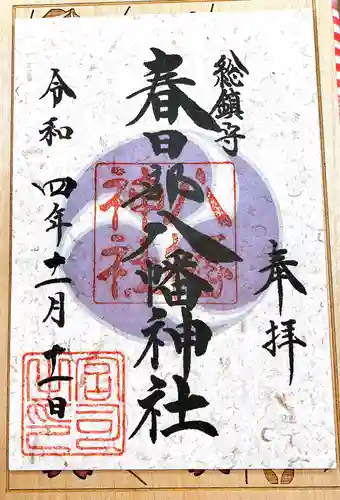 奉拝
総鎮守
春日部八幡神社
八幡神社
令和四年十一月十一日
宮司之印